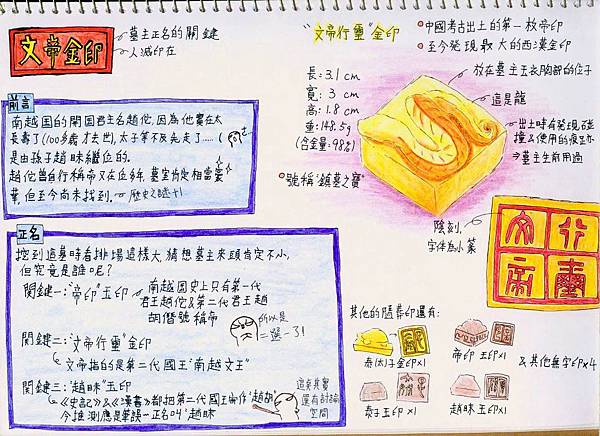 文帝金印
墓主正名的關鍵
人滅印在
前言
南越國的開國君主名趙佗,因為他實在太
長壽了(100多歲才去世),太子等不及先走了……
是由孫子趙眛繼位的。
趙佗曾自行稱帝又在位久,墓室肯定相當豪
華,但至今尚未找到。
歷史之謎+1
正名
挖到這墓時看排場這樣大,猜想墓主來頭肯定不小,
但究竟是誰呢?
關鍵一:“帝印”玉印
南越國史上只有第一代
君王趙佗&第二代君王趙
胡僭號稱帝
所以是
二選一3!
關鍵二:“文帝行璽”金印
文帝指的是第二代國王“南越文王”
關鍵三:“趙眛”玉印
《史記》&《漢書》都把第二代國王叫作“趙胡”
今推測應是筆誤→正名叫“趙眛
這兒其實
還有討論
空間
“文帝行璽”金印
中國考古出土的第一枚帝印
至今發現最大的西漢金印
長:3.1 cm
寬:3 cm
高:1.8 cm
重:148.5g
(含金量:98%)
號稱“鎮墓之寶”
放在墓主玉衣胸部的位子
這是龍
出土時有發現碰
撞&使用的痕跡
⇒墓主生前用過
陰刻,
字体為小篆
文行
帝璽
其他的隨葬印還有:
泰(太)子金印×1
帝印 玉印×1
泰子玉印×1
趙眛玉印×1
& 其他無字印×4